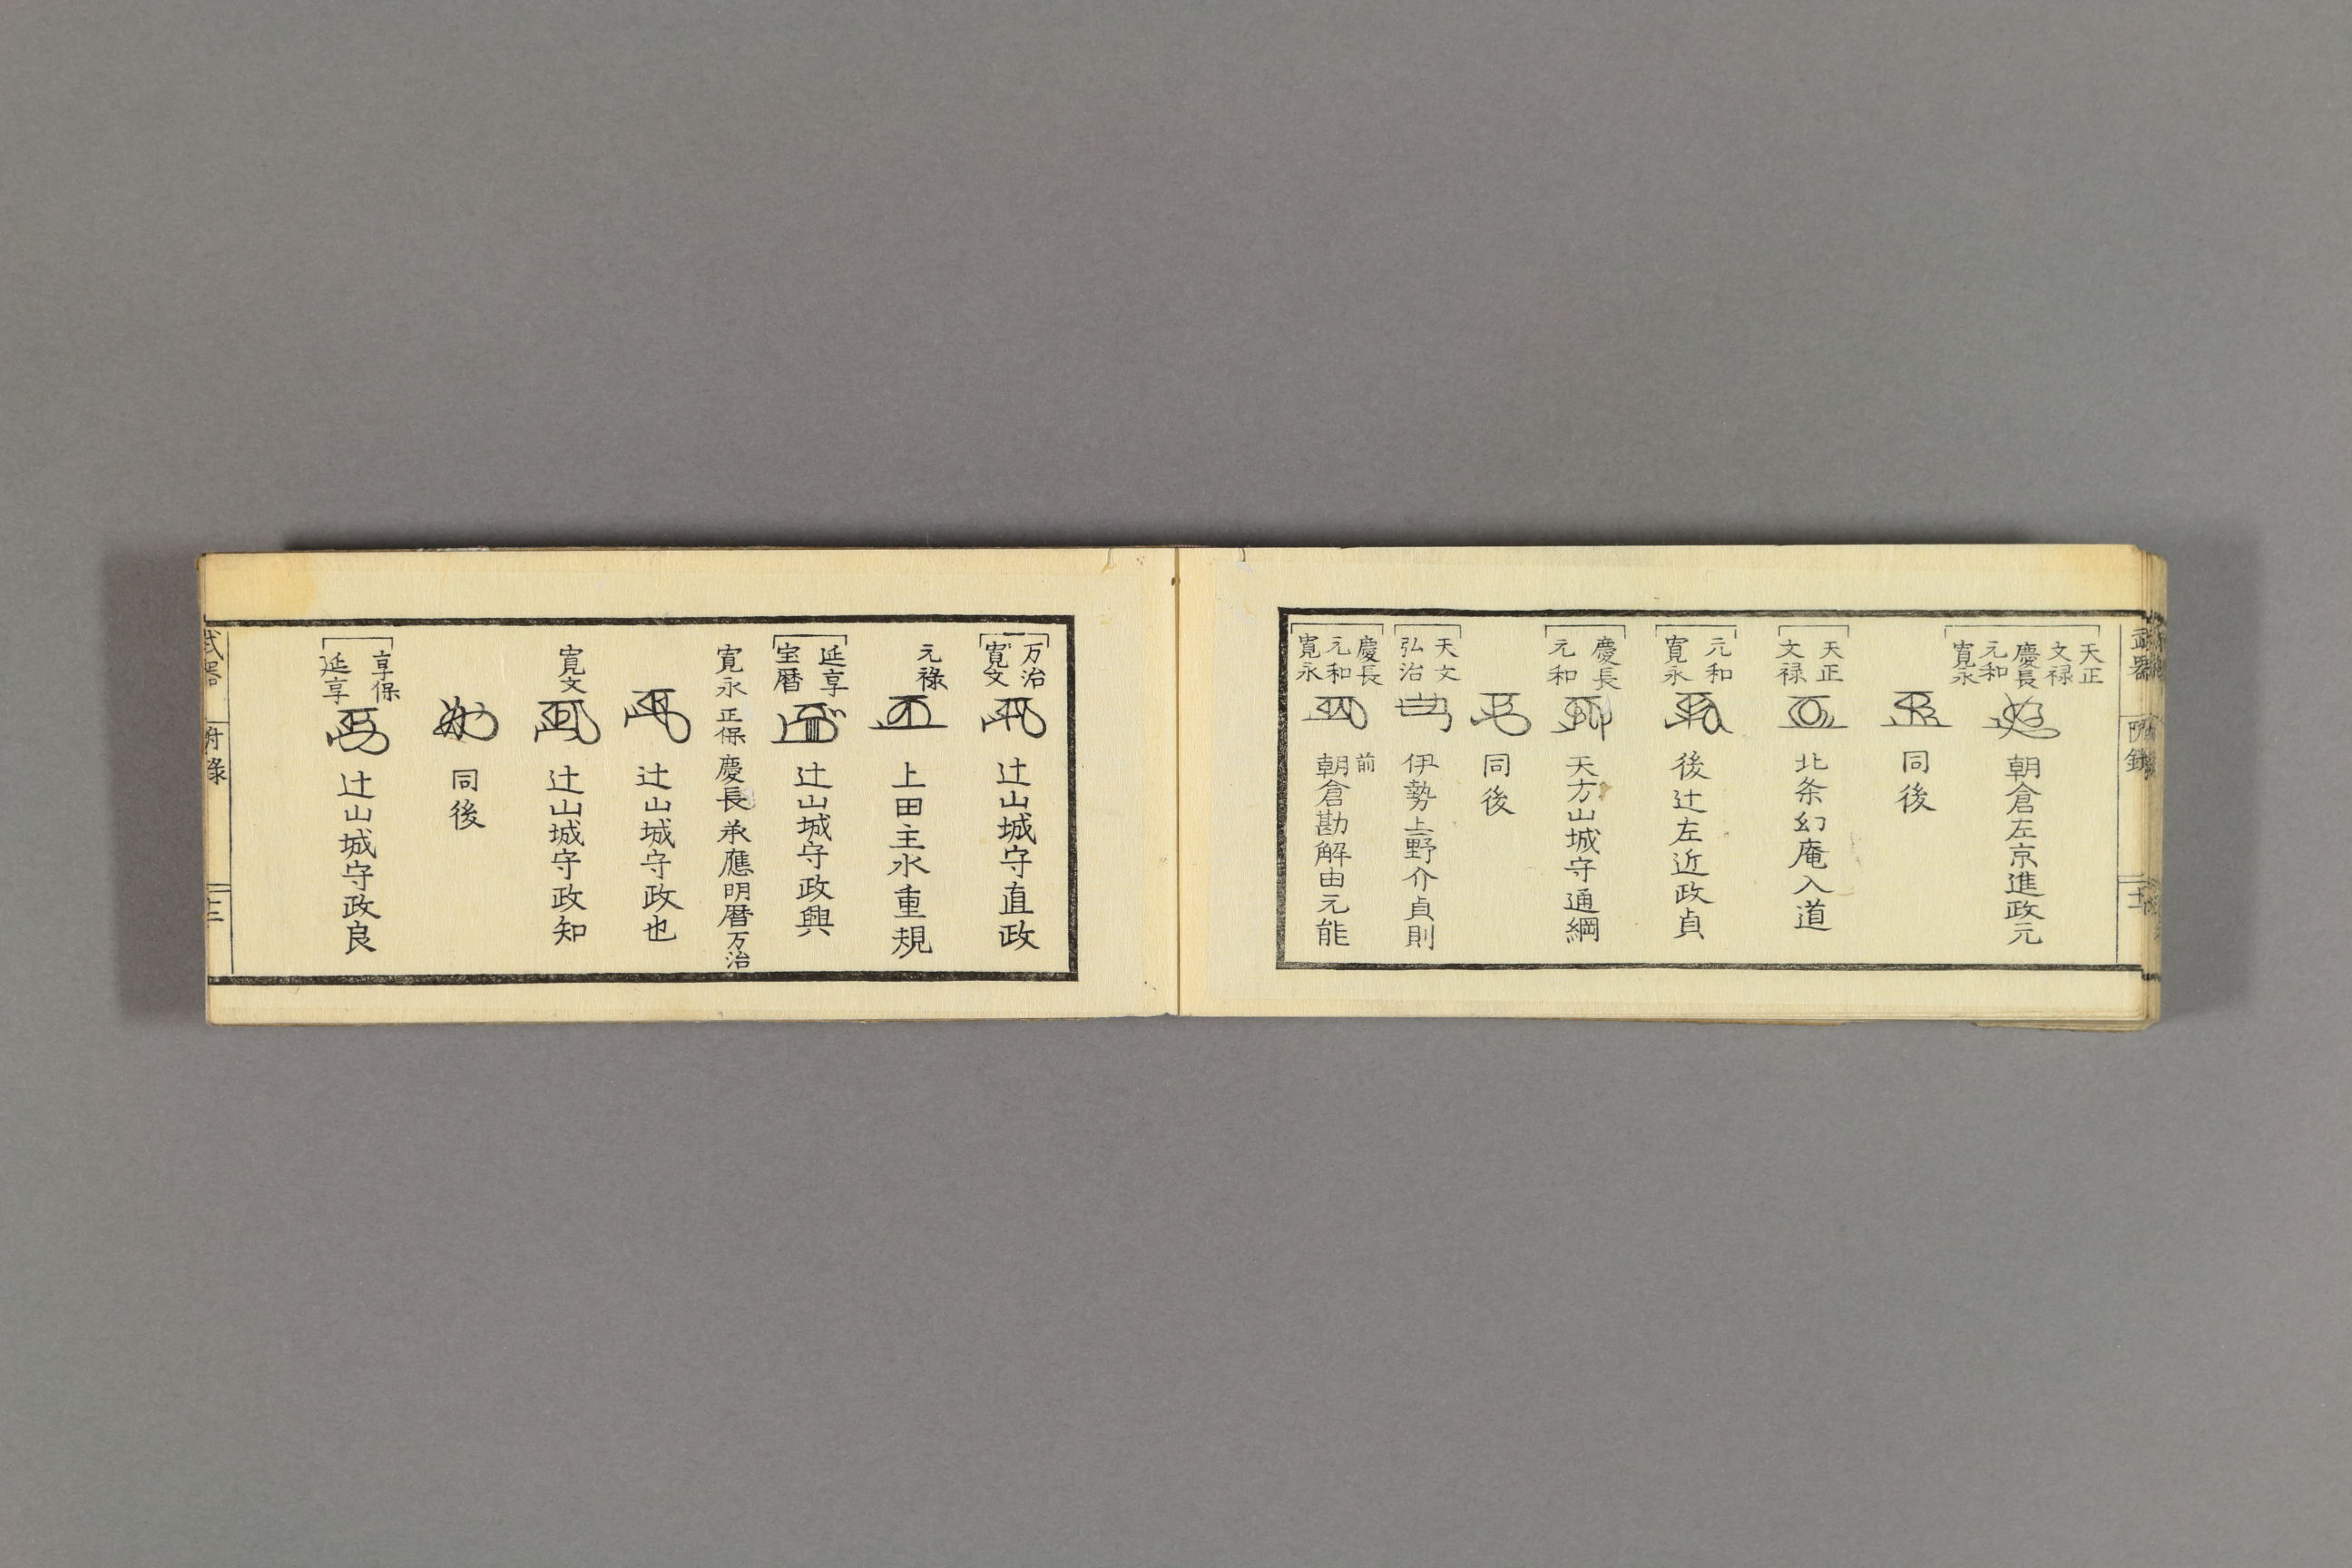 天正
文禄
慶長
元和
寛永
朝倉左京進政元
同後
天正
文禄
北条幻庵入道
元和
寛永
後辻左近政貞
慶長
元和
天方山城守通綱
同後
天文
弘治
伊勢上野介貞則
慶長
元和
寛永
前
朝倉勘解由元能
万治
寛文
辻山城守直政
元禄
上田主水重規
延享
宝暦
辻山城守政興
寛永正保慶長承應明暦万治
辻山城守政也
寛文
辻山城守政知
同後
享保
延享
辻山城守政良
武器
附録